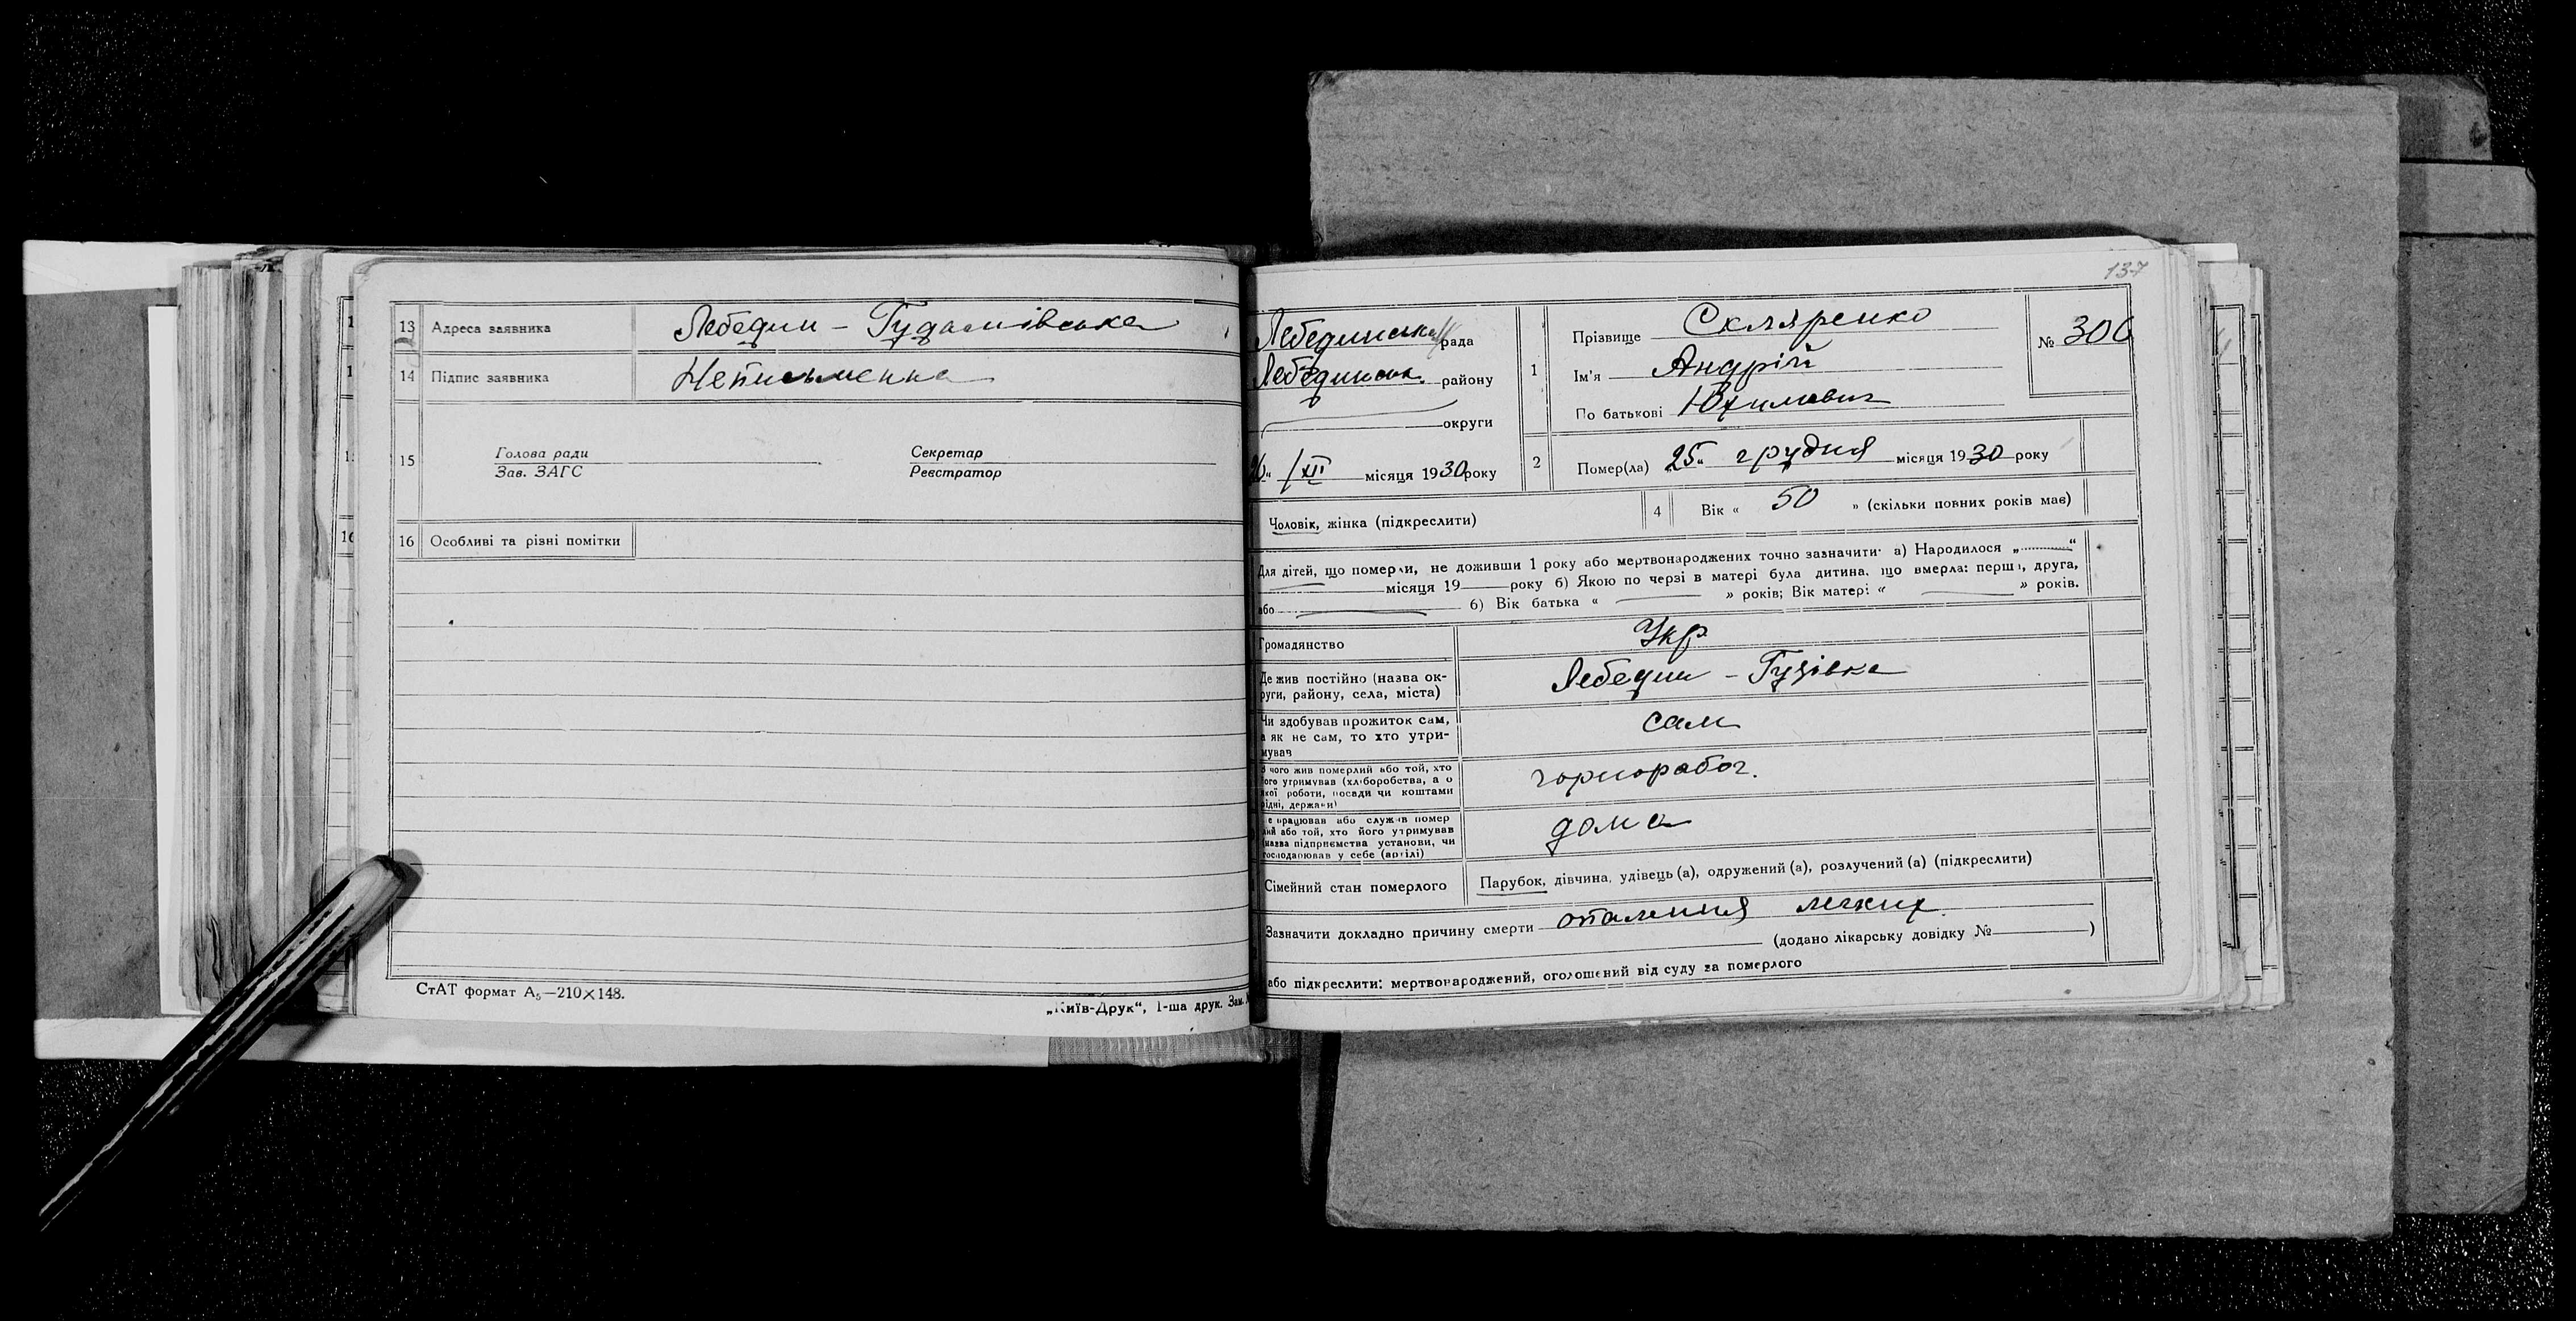 13 Адреса заявника Лебедин – Гудимівська
14 Підпис заявника Неписьменна
15 Голова ради Секретар
Зав. ЗАГС Реєстратор
16 Особливі та різні помітки
СтАТ формат А₅—210×148.
„Київ-Друк“, 1-ша друк. Зам.
137
Лебединська рада
Лебединськ. району
округи
26 " / XII місяця 1930 року
1 Прізвище Скляренко
Ім'я Андрій
По батькові Юхимович
№ 306
2 Помер(ла) 25 " грудня місяця 1930 року
Чоловік, жінка (підкреслити)
4 Вік « 50 » (скільки повних років мав)
Для дітей, що померли, не доживши 1 року або мертвонароджених точно зазначити: а) Народилося „ “
місяця 19 року б) Якою по черзі в матері була дитина, що вмерла: перша, друга,
або б) Вік батька « » років; Вік матері « » років.
Громадянство Укр
Де жив постійно (назва ок-
руги, району, села, міста) Лебедин – Гузівка
Чи здобував прожиток сам,
а як не сам, то хто утри-
мував сам
З чого жив померлий або той, хто
його утримував (хліборобства, а о
якої роботи, посади чи коштами
рідні, держави) чорнорабоч.
е працював або служив помер
лий або той, хто його утримував
(назва підприємства установи, чи
господарював у себе (артілі) дома
Сімейний стан померлого Парубок, дівчина, удівець (а), одружений (а), розлучений (а) (підкреслити)
Зазначити докладно причину смерти опалення легких
(додано лікарську довідку № )
або підкреслити: мертвонароджений, оголошений від суду за померлого